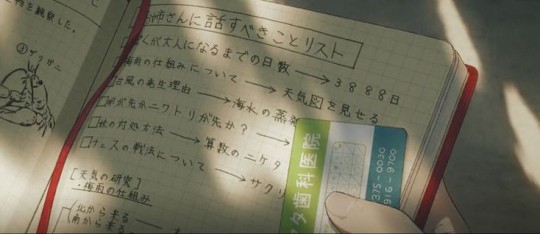 を観察した。
④ザリガニ
姉さんに話すべきことリスト
ぼくが大人になるまでの日数→3888日
梅雨の仕組みについて→天気図を見せる
台風の発生理由→海水の蒸発
卵が先かニワトリが先か?→
□妹の対処方法→算数のニケタ
□チェスの戦法について→サクリ
[天気の研究]
・梅雨の仕組み
北から来る
南から来る
タ歯科医院
375-0030
916-9700